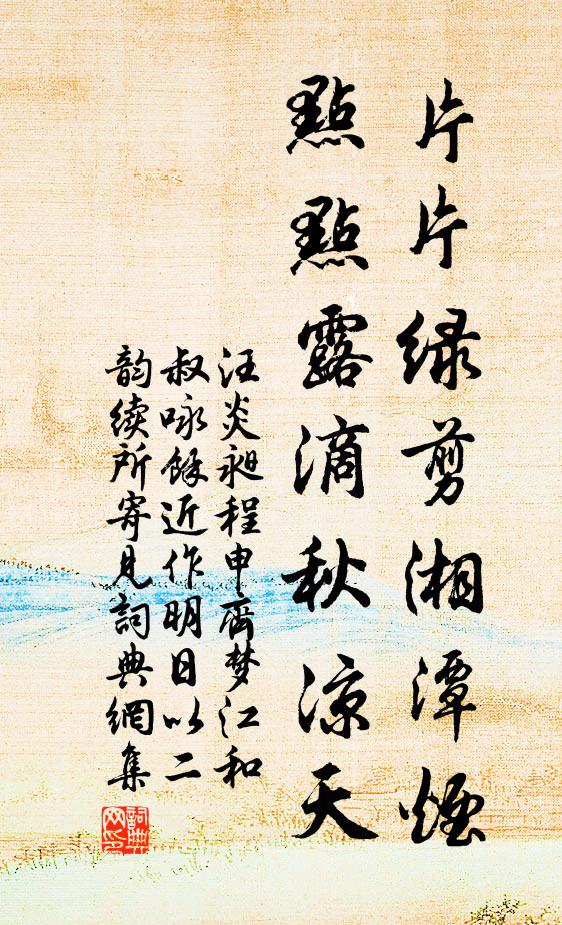 片片绿剪湘潭煙
點點露滴秋凉天
汪炎昶程申齋梦江和
叔咏餘近作明日以二
韵续所寄見詞典網集
詞典
网